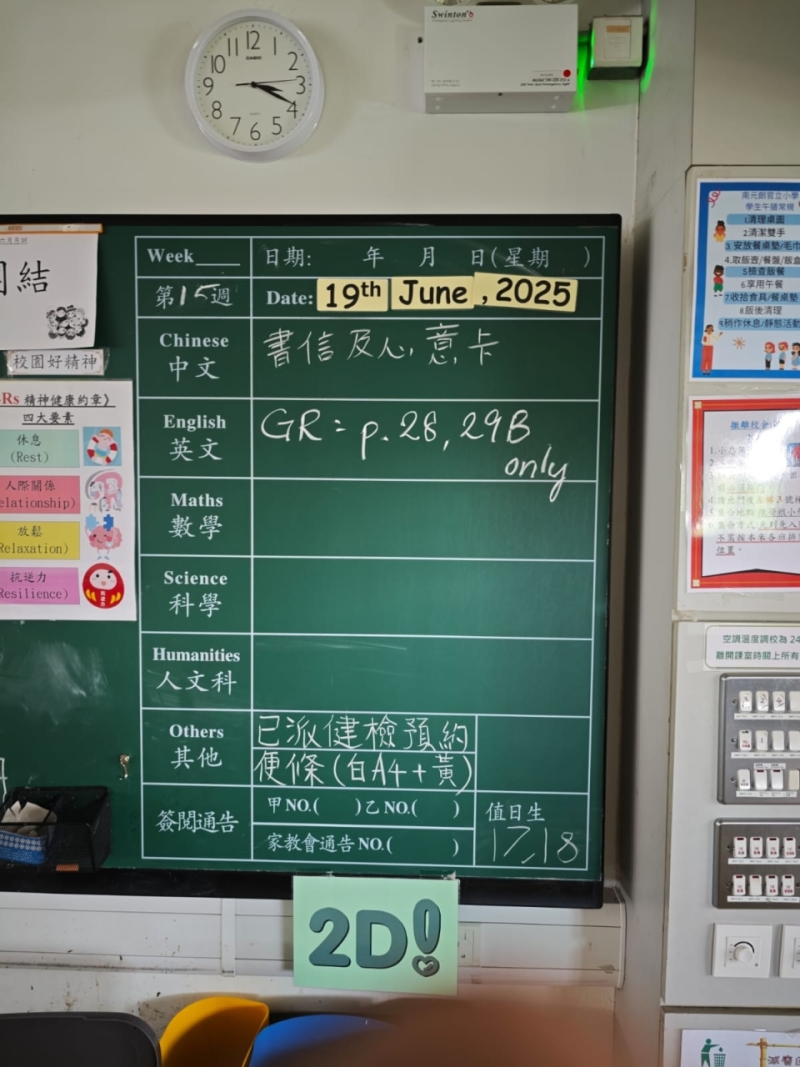 12
11
1
10
2
9
3
8
4
7
5
6
CASIO
Swinton
六月月訓
團結
校園好精神
4Rs 精神健康約章》
四大要素
休息
(Rest)
人際關係
Relationship)
放鬆
Relaxation)
抗逆力
(Resilience)
Week
日期: 年 月 日(星期 )
第15週
Date: 19th June, 2025
Chinese
中文
書信及心意卡
English
英文
GR = p. 28, 29B
only
Maths
數學
Science
科學
Humanities
人文科
Others
其他
已派健檢預約
便條(白A4+黃)
簽閱通告
甲NO.( )乙NO.( )
家教會通告NO.( )
值日生
17,18
2D!
南元朗官立小學
學生午膳常規
1.清理桌面
2.清潔雙手
3.安放餐桌墊/毛巾
4.取飯壺/餐盤/飯盒
5.檢查飯餐
6.享用午餐
7.收拾食具/餐桌墊
8.飯後清理
9.稍作休息/靜態活動
空調溫度調校為 24
離開課室時關上所有